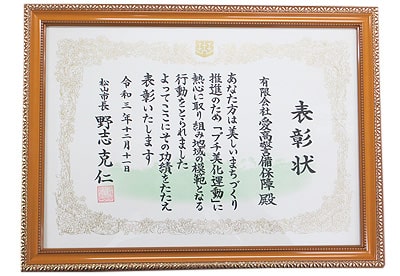 表彰状
有限会社愛高警備保障 殿
あなた方は美しいまちづくり
推進のため「プチ美化運動」に
熱心に取り組み地域の模範となる
行動をとられました
よってここにその功績をたたえ
表彰いたします
令和三年十二月十一日
松山市長 野志克仁